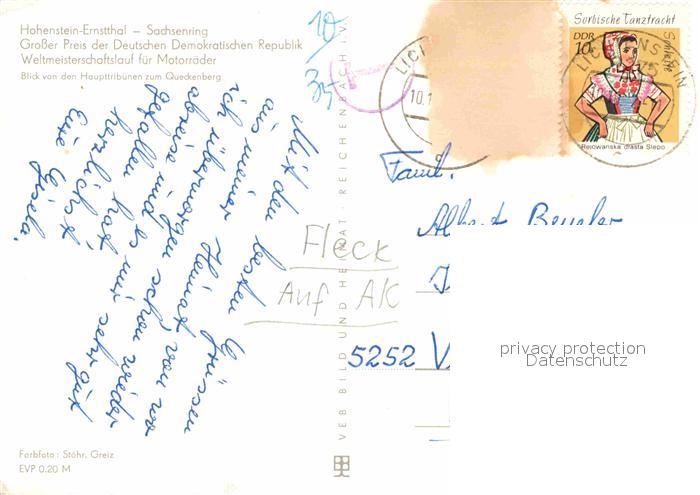 Hohenstein-Ernstthal – Sachsenring
Großer Preis der Deutschen Demokratischen Republik
Weltmeisterschaftslauf für Motorräder
Blick von den Haupttribünen zum Queckenberg
Mit den besten Grüssen
aus meiner Heimat, von wo
ich übermorgen schon wieder
abreise und es mir sehr gut
gefallen hat
herzlichst
Eure Gisela.
Farbfoto: Stöhr, Greiz
EVP 0.20 M
VEB BILD UND HEIMAT · REICHENBACH i.V.
10
35
Fleck
Auf AK
Sorbische Tanztracht
DDR
10
Schleife
Rejowanska drasta Slepo
Famil.
Albert
5252
privacy protection
Datenschutz